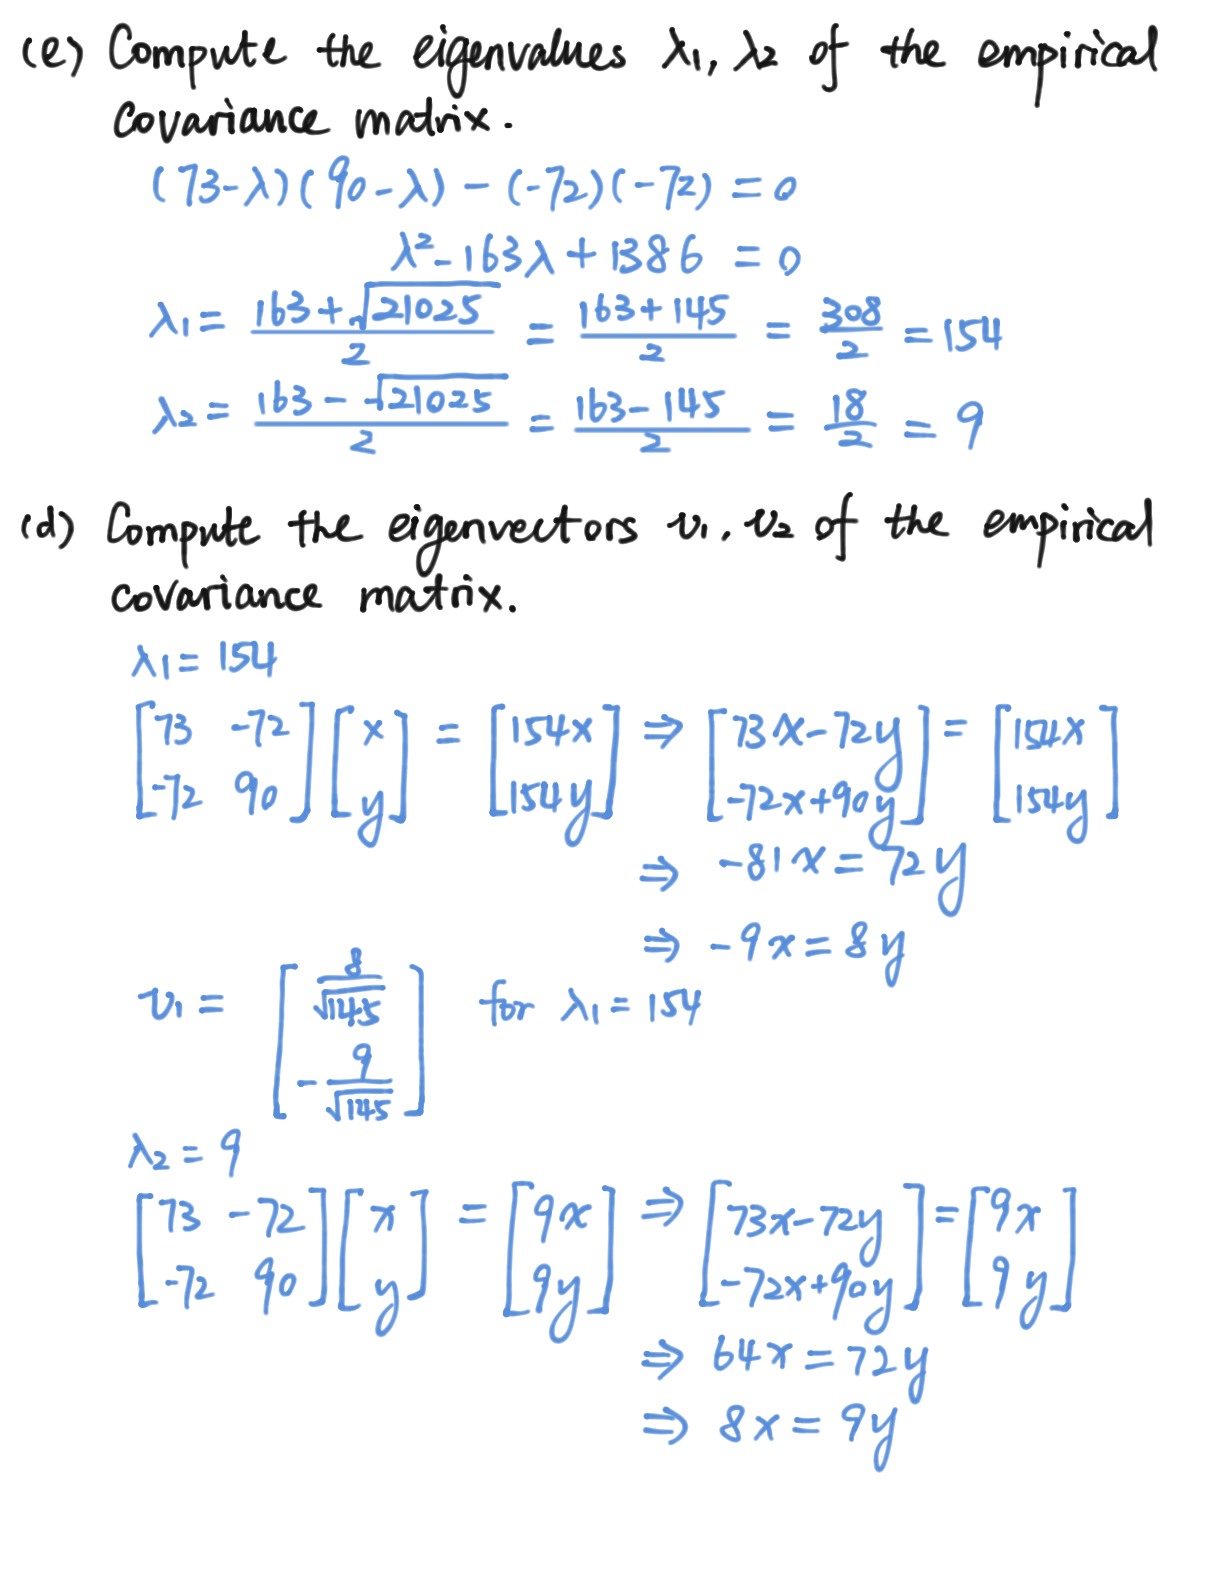 (e) Compute the eigenvalues λ1, λ2 of the empirical
covariance matrix.
(73-λ)(90-λ) - (-72)(-72) = 0
λ² - 163λ + 1386 = 0
λ1 = (163 + √21025)/2 = (163 + 145)/2 = 308/2 = 154
λ2 = (163 - √21025)/2 = (163 - 145)/2 = 18/2 = 9
(d) Compute the eigenvectors v1, v2 of the empirical
covariance matrix.
λ1 = 154
[73 -72; -72 90] [x; y] = [154x; 154y] ⇒ [73x - 72y; -72x + 90y] = [154x; 154y]
⇒ -81x = 72y
⇒ -9x = 8y
v1 = [8/√145; -9/√145] for λ1 = 154
λ2 = 9
[73 -72; -72 90] [x; y] = [9x; 9y] ⇒ [73x - 72y; -72x + 90y] = [9x; 9y]
⇒ 64x = 72y
⇒ 8x = 9y